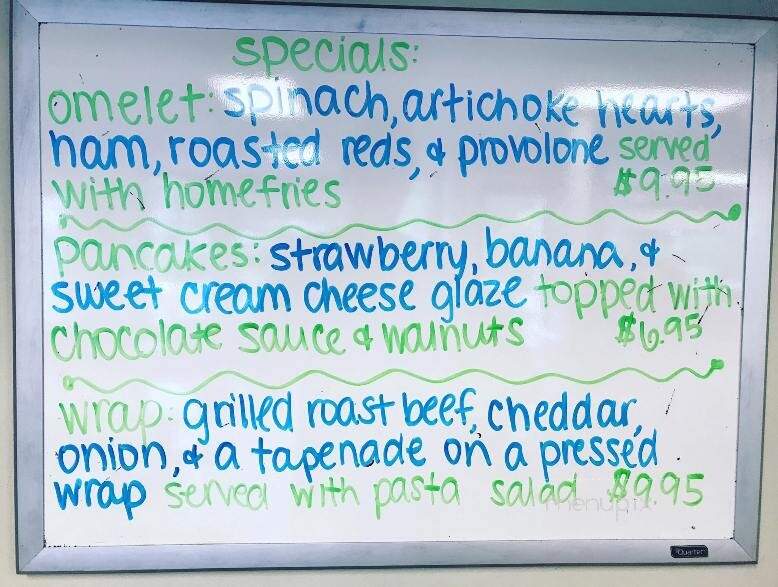 specials:
omelet: spinach, artichoke hearts,
ham, roasted reds, & provolone served
with homefries $9.95
pancakes: strawberry, banana, &
sweet cream cheese glaze topped with
chocolate sauce & walnuts $6.95
wrap: grilled roast beef, cheddar,
onion, & a tapenade on a pressed
wrap served with pasta salad $9.95
menupix
Quartet